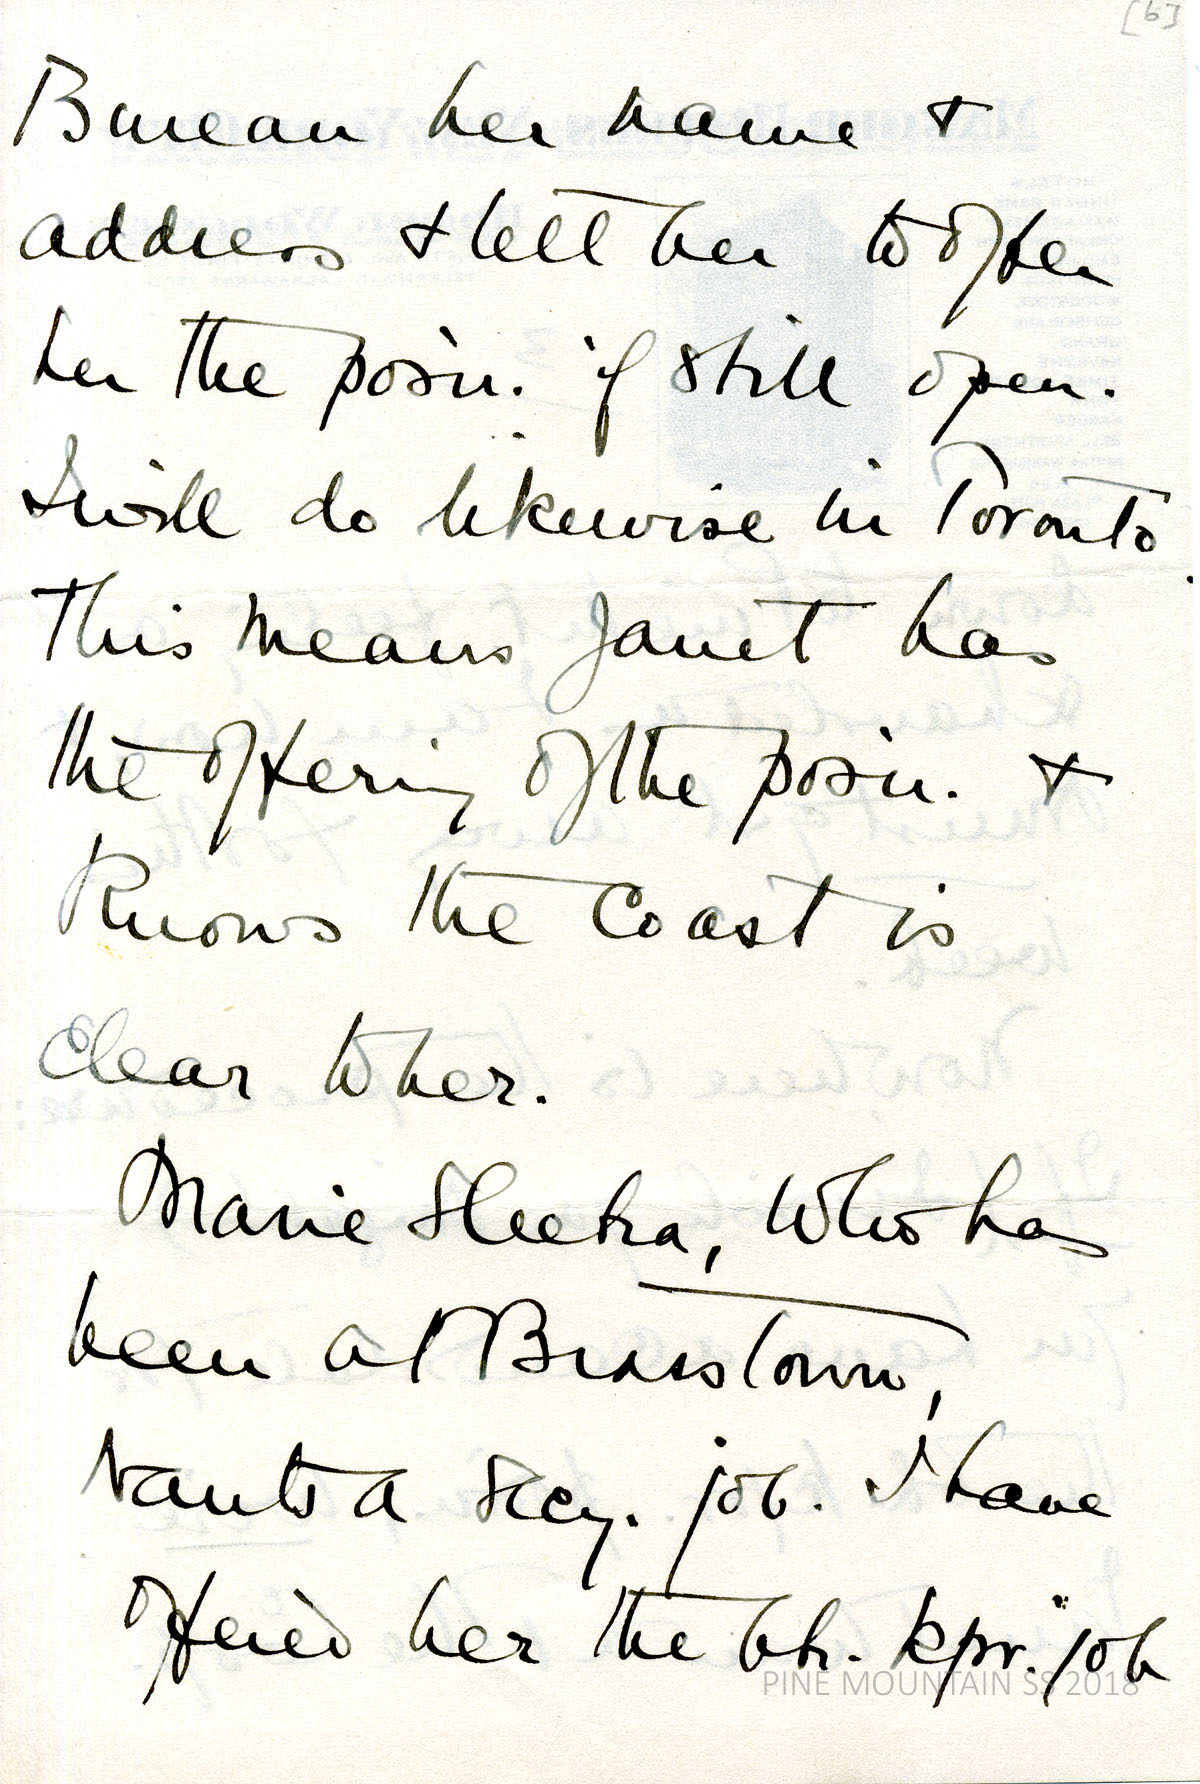 [6]
Bureau her name &
address & tell her to offer
her the posin. if still open.
I will do likewise in Toronto.
This means Janet has
the offering of the posin. &
Knows the Coast is
Clear to her.
Marie Sleetra, who has
been at Brasstown,
wants a Secy. job. I have
offered her the bk. kpr. job
PINE MOUNTAIN SS 2018